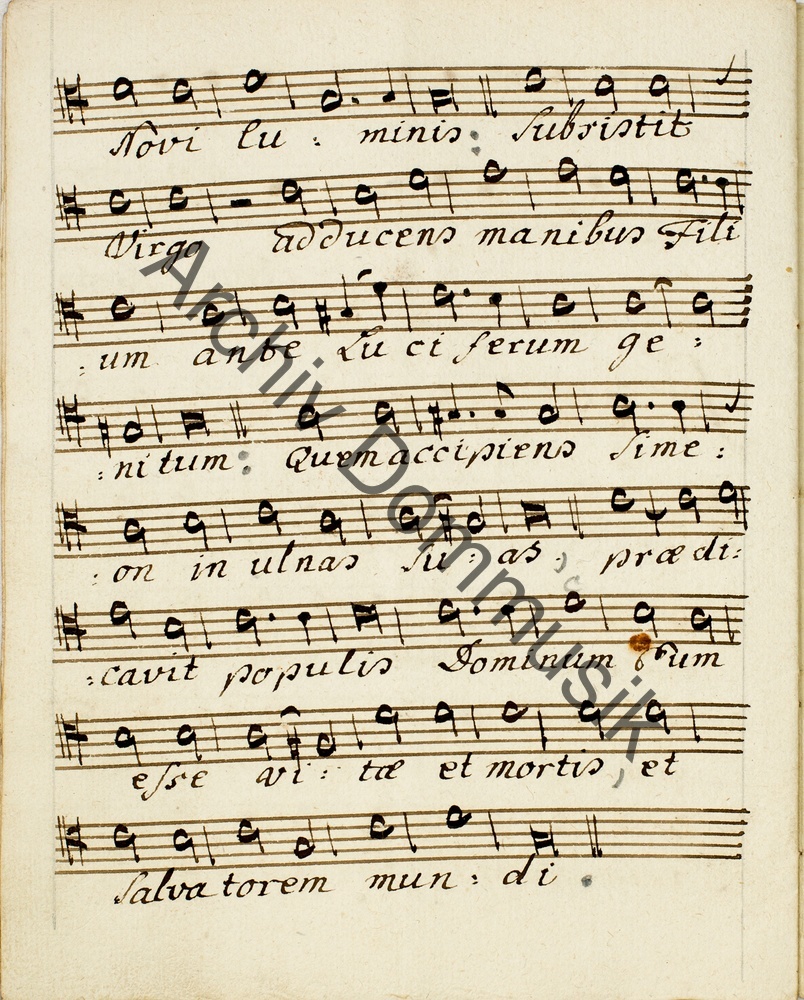 Novi lu : minis: Subsistit
Virgo adducens manibus Fili
: um ante Lu ci ferum ge :
: ni tum: Quem accipiens Sime :
: on in ulnas su : as, præ di:
: cavit populis Dominum Eum
esse vi : tæ et mortis, et
Salva torem mun : di.
Archiv Dommusik